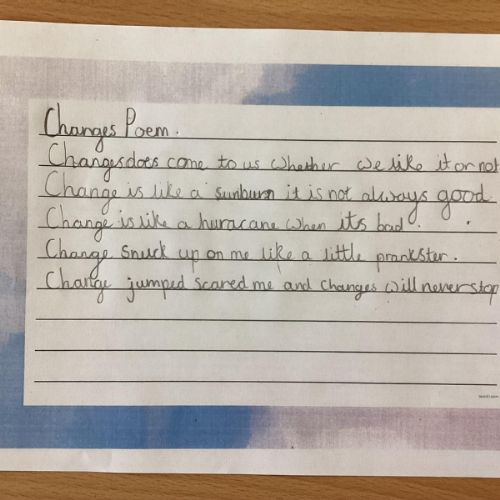 Changes Poem.
Changes does come to us whether we like it or not
Change is like a sunburn it is not always good.
Change is like a huracane when its bad.
Change snuck up on me like a little prankster.
Change jumped scared me and changes will never stop